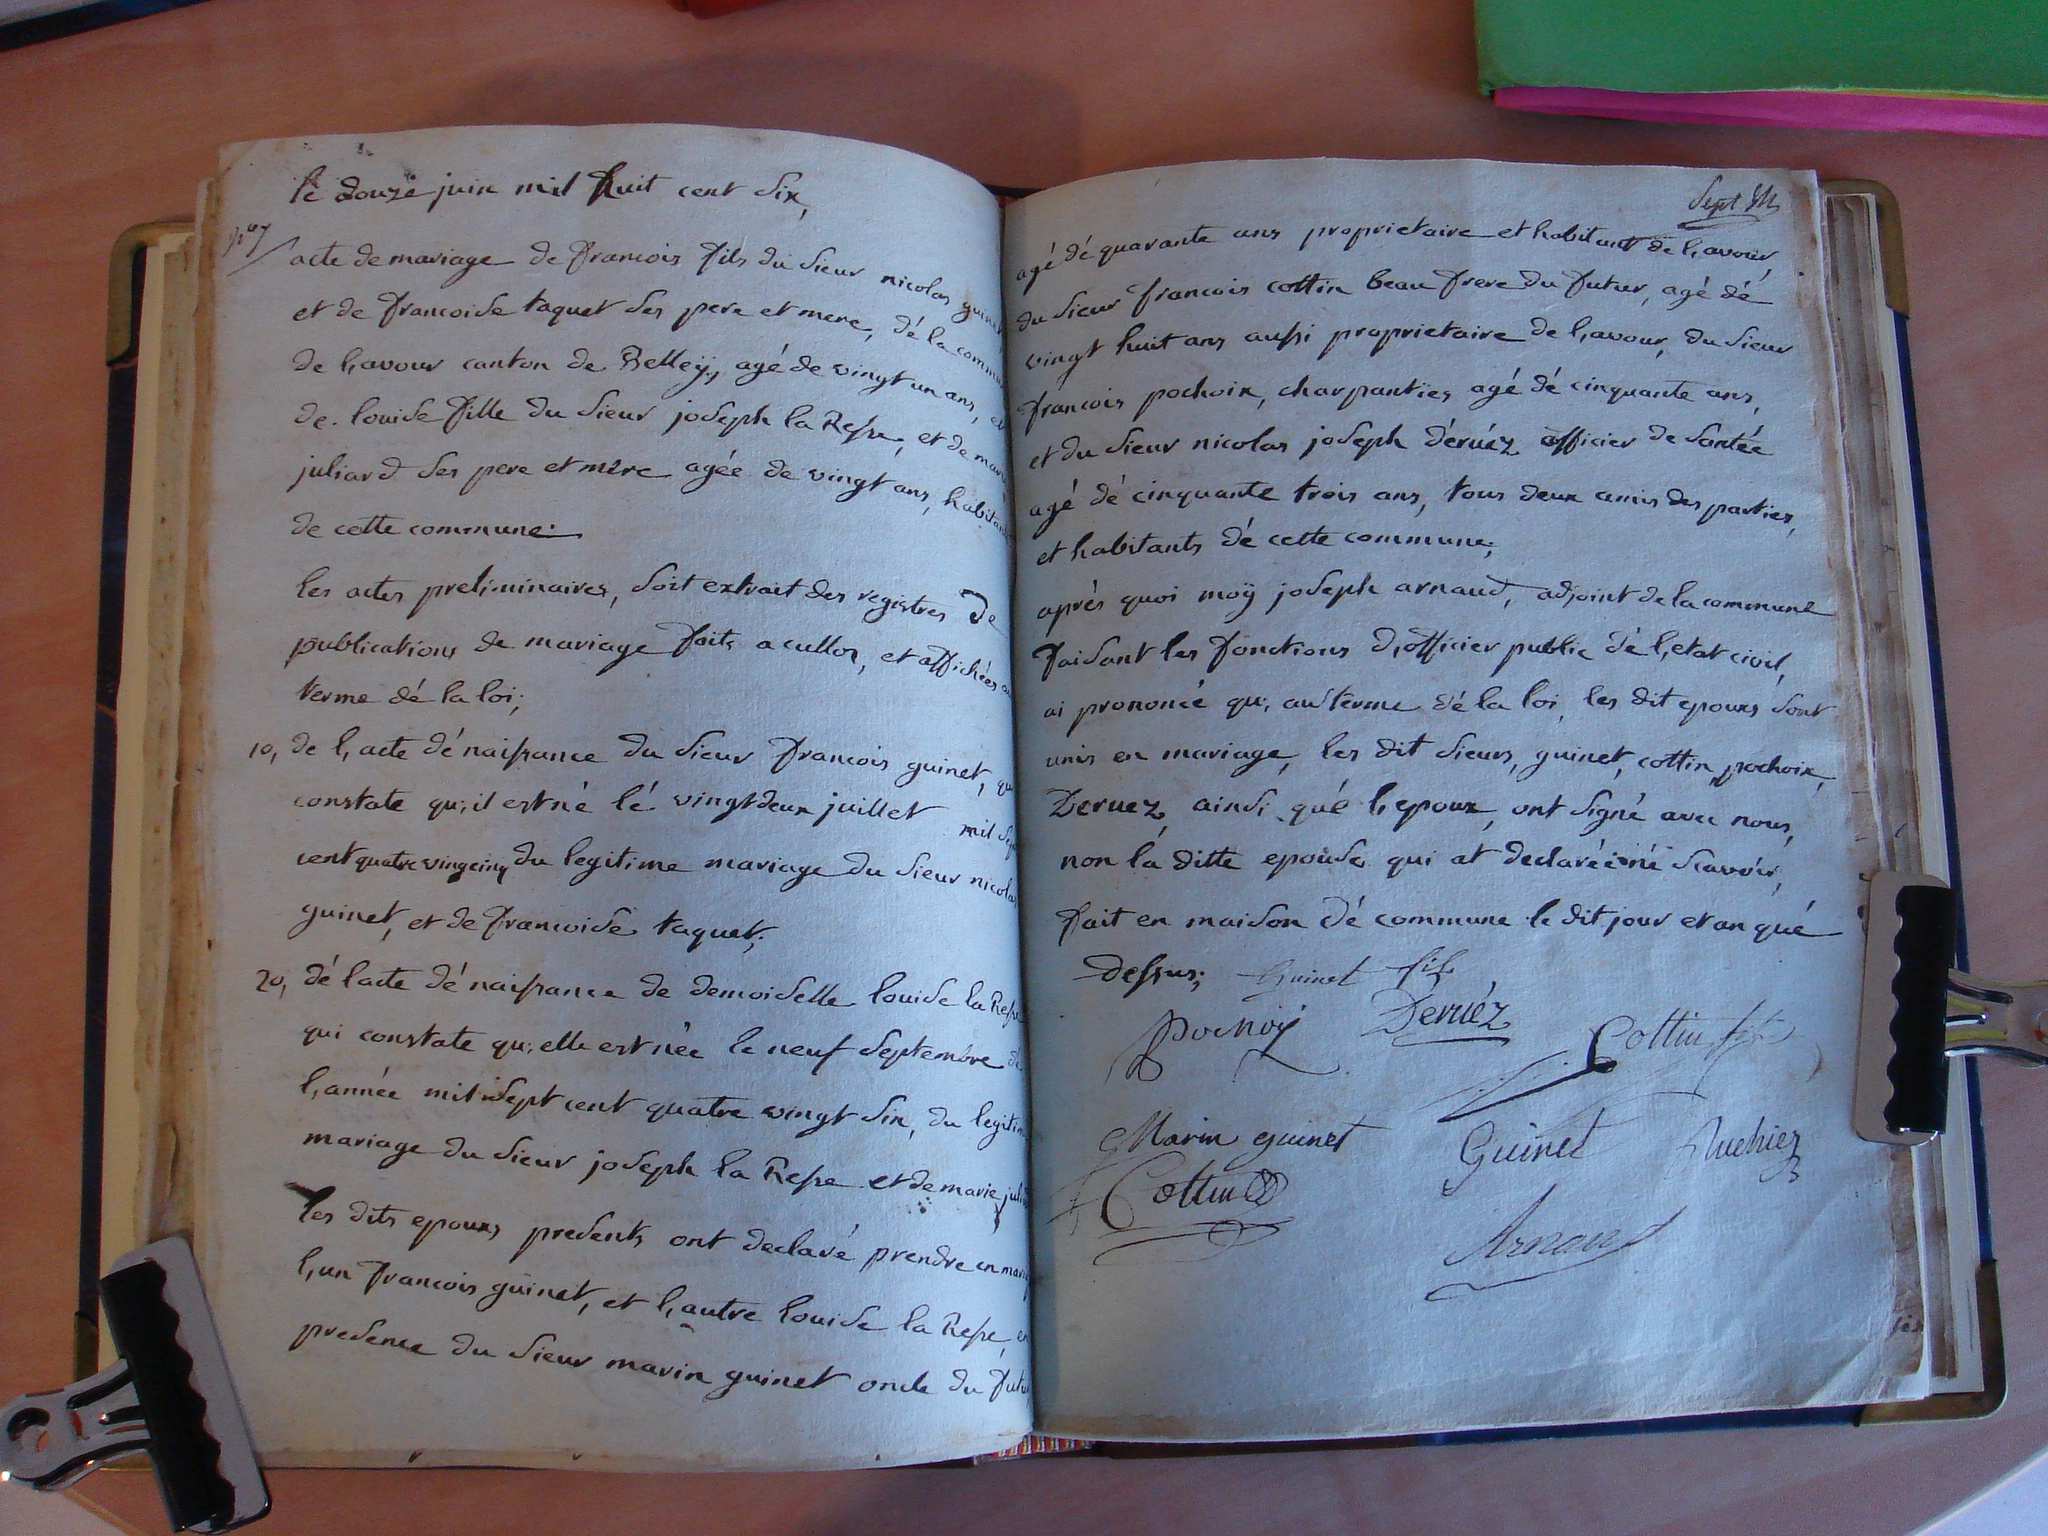 le douze juin mil huit cent six,
acte de mariage de francois fils du sieur nicolas guinet
et de francoise taquet ses pere et mere, dé la commu
de l,avour canton de Belleÿ, agé de vingt un ans, et
de louise fille du sieur joseph la Resse, et de marie
juliard ses pere et mère agée de vingt ans, habitants
de cette commune:
les actes preliminaires, soit extrait des registres de
publications de mariage faits a culloz, et affichées au
terme dé la loi;
1o, de l,acte dé naissance du sieur francois guinet, qui
constate qu,il est né lé vingt deux juillet mil sept
cent quatre vingcinq du legitime mariage du sieur nicolas
guinet, et de francoise taquet;
2o, dé lacte dé naissance de demoiselle louise la Resse
qui constate qu,elle est née le neuf septembre de
l,année mil sept cent quatre vingt six, du legitime
mariage du sieur joseph la Resse et de marie juli
les dits epoux presents ont declaré prendre en maria
l,un francois guinet, et l,autre louise la Resse, en
presence du sieur marin guinet oncle du futur
Sept
agé dé quarante ans proprietaire et habitant de l,avour,
du sieur francois cottin beau frere du futur, agé dé
vingt huit ans aussi proprietaire de l,avour, du sieur
francois pochoix, charpantier agé dé cinquante ans,
et du sieur nicolas joseph déruéz officier de santée
agé dé cinquante trois ans, tous deux amis des parties,
et habitants dé cette commune;
après quoi moÿ joseph arnaud, adjoint de la commune
faisant les fonctions d,officier public dé l,etat civil,
ai prononcé qu, au terme dé la loi, les dit epoux sont
unis en mariage, les dit sieurs, guinet, cottin, pochoix,
Deruez, ainsi qué l,epoux, ont signé avec nous,
non la ditte epouse qui at declarée né scavoir,
fait en maison dé commune le dit jour et an qué
dessus; Guinet fils
pochoy Deruéz Cottin
Marin guinet Guinet
Cottin
Arnaud